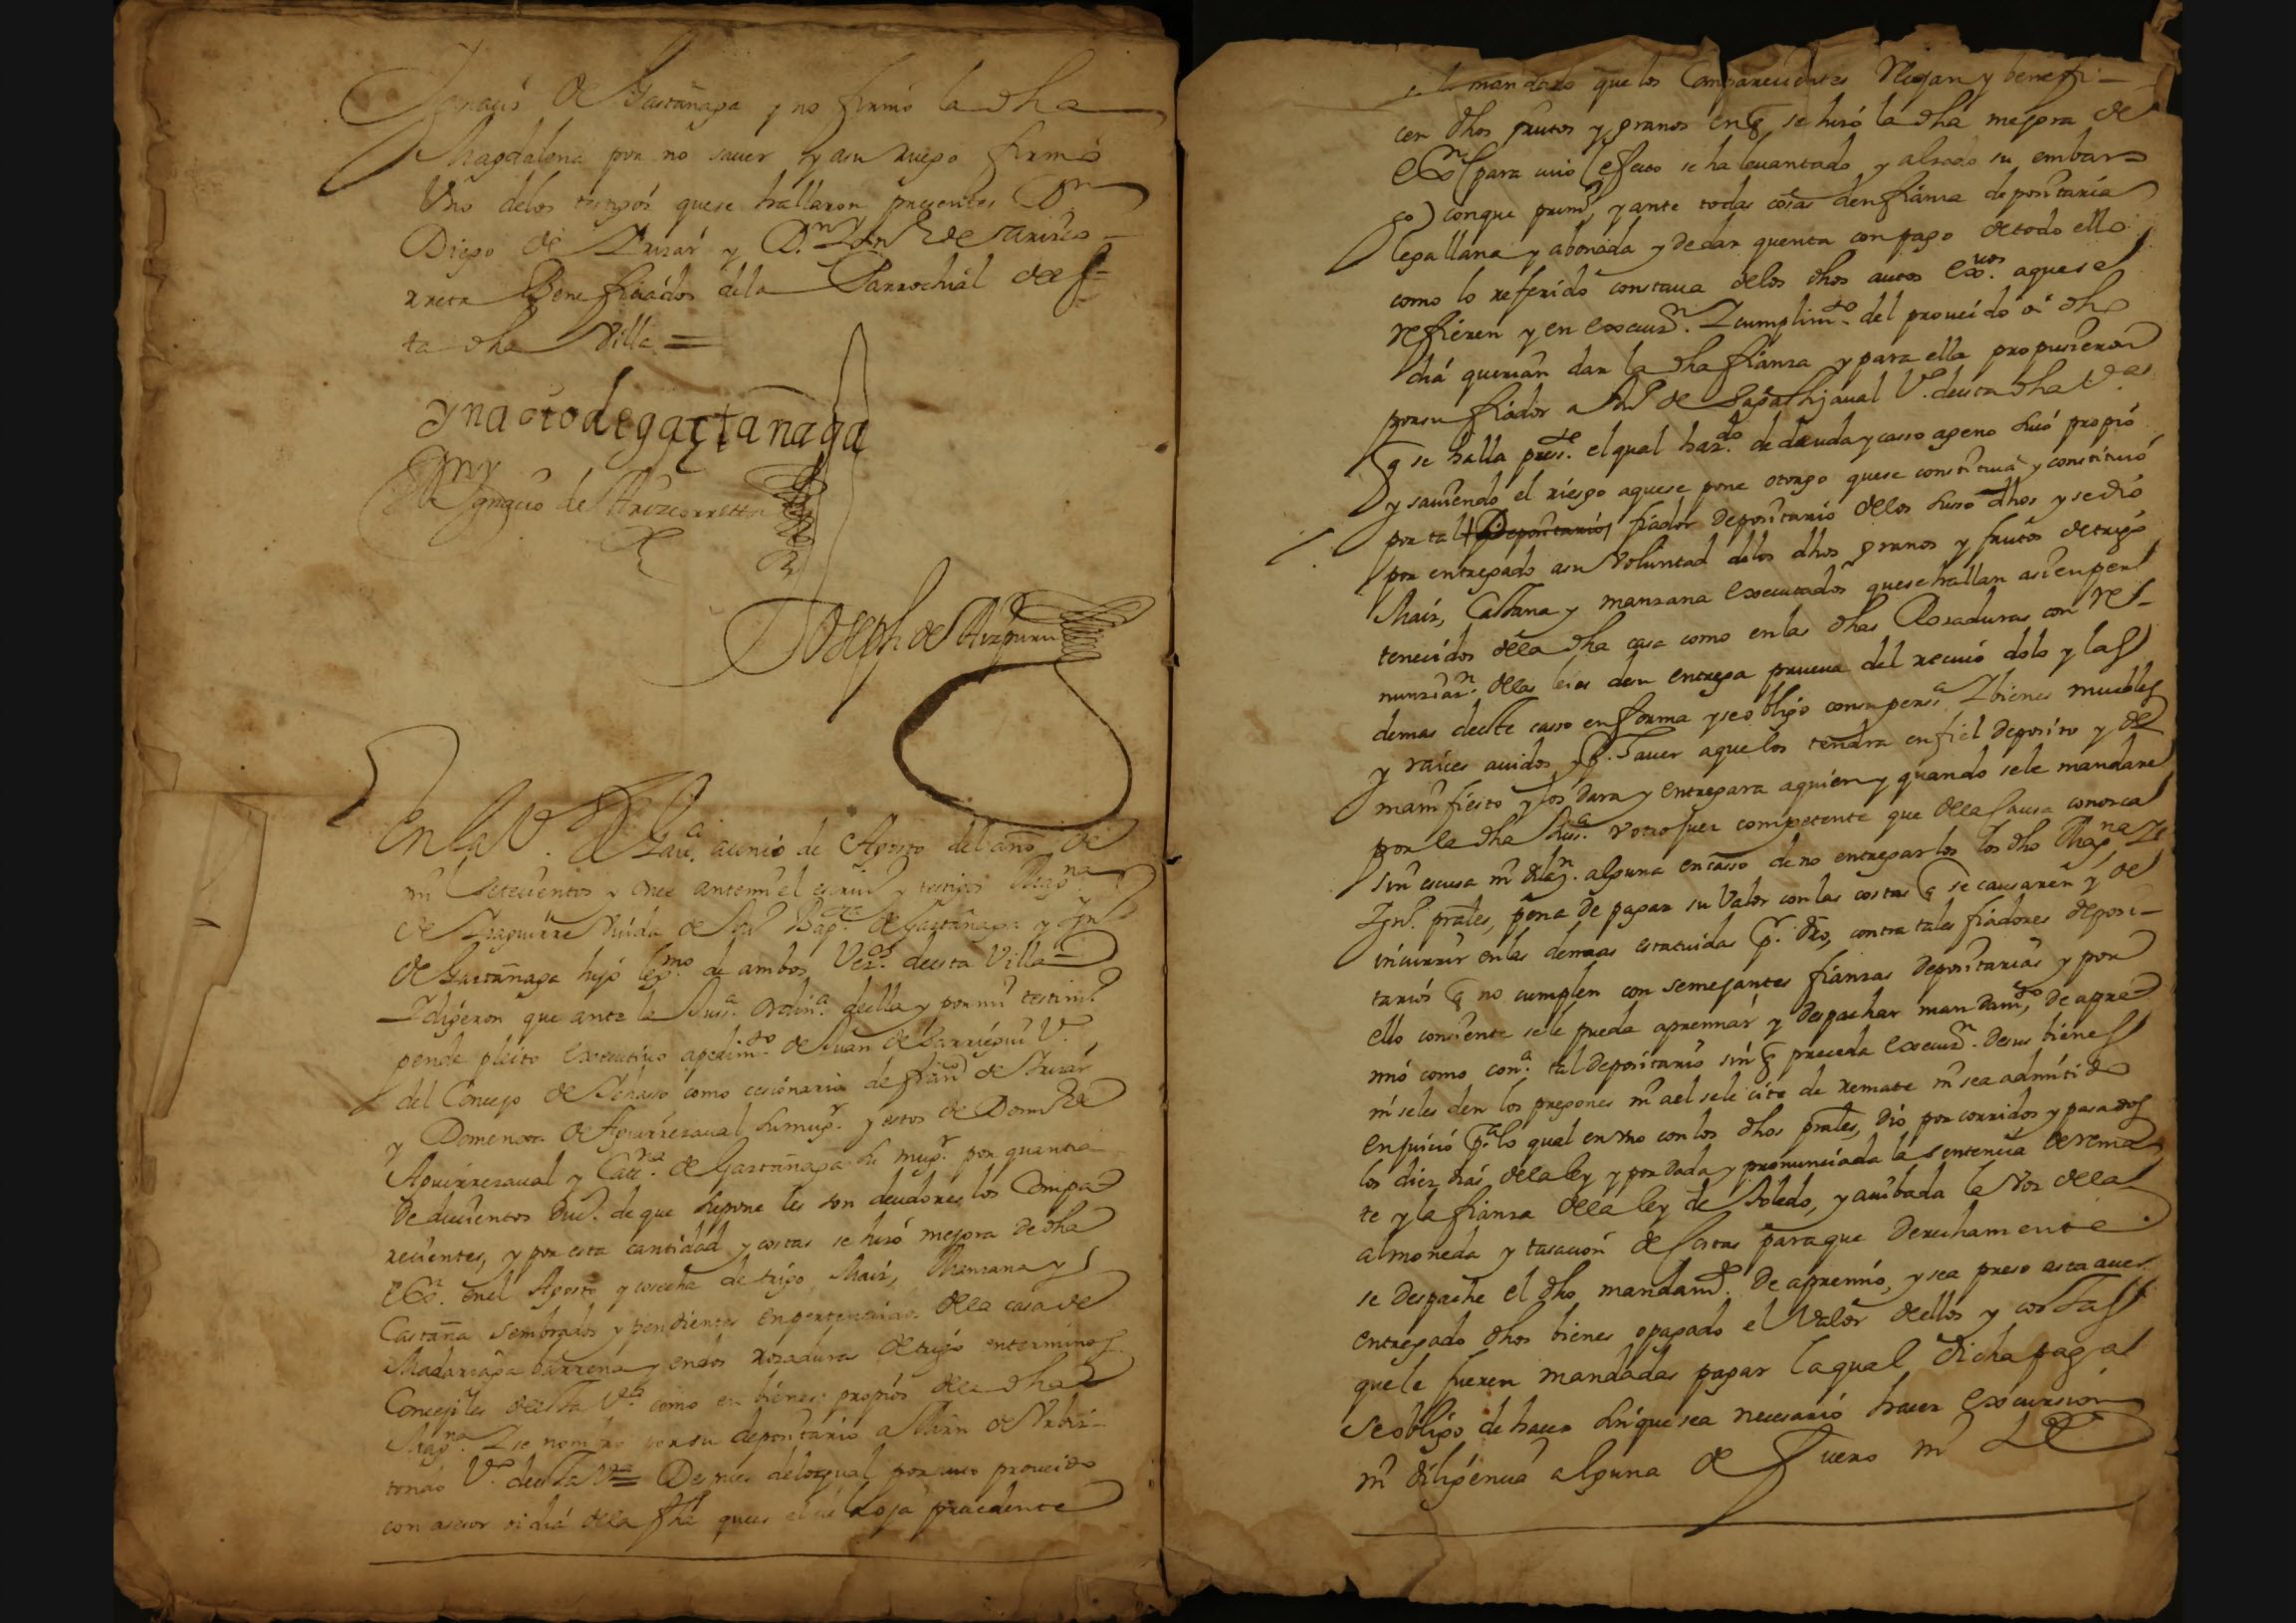 Ignacio de Gastañaga y no firmó la dha
Magdalena por no saver y asu ruego firmó
Uno delos testigos quese hallaron presentes Dn
Diego de Irizar y Dn Ign.º de Ariz co-
rreta Beneficiados dela Parrochial de es-
ta dha Villa =
ynaciodegaztañaga
Dn Ignacio de Arizcorretta
Joseph de Aizpuru
En la V.ª de a cinco de Agosto del año de
mil setecientos y once antemi el escriv.º y testigos Mag.na
de Viuda de Ju.º Bap.ta de Gastañaga y Ign.º
de Gastañaga hijo leg.mo de ambos Vez.os de esta Villa
Y digeron que ante la Jus.ª ordin.ª de ella y por mi testim.º
pende pleito executivo a pedim.to de Juan de Barruegui V.º
del Concejo de como cesionario de Fran.co de Irizar
y Domenxa de Aguirrezaval su mug.r y estos de Dom.º de
Aguirrezaval y Cat.na de Gastañaga su mug.r por quantia
de ducientos duc.s de que supone les son deudores los Compa-
recientes, y por esta cantidad y costas se hizó mejora de dha
exon. en el Agosto y cosecha de trigo, Maiz, Manzana y
Castaña sembrados y pendientes en pertenecidos de la casa de
Madariaga barrena y en dos rozaduras de trigo en terminos
Concejiles de esta V.ª como en bienes propios de la dha
Mag.na Y se nombró por su depositario a Mrn de
V.º de esta V.ª = Despues de lo qual por auto proveido
con asesor oi dia de la fha que es el de la oja precedente
mandado que los Comparecientes Cojan y benefi-
cien dhos frutos y granos en q se hizó la dha mejora de
exon (para cuio efecto se ha levantado y alzado su embar-
go) conque prim.º y ante todas cosas den fianza depositaria
legallana y abonada y de dar quenta con pago de todo ello
como lo referido constava delos dhos autos ex.vos aquese
refieren y en execuz.n Y cumplim.to del proveido oi dho
dia querian dar la dha fianza y para ella propusieron
por su fiador a V.º de esta dha V.ª
q se halla pres.te el qual haz.do de deuda y casso ageno suio propio
y saviendo el riesgo aquese pone otorgo quese constituia y constituió
por tal Depositario fiador depositario delos suso dhos y se dió
por entregado asu voluntad delos dhos granos y frutos de trigo
Maiz, Castana y manzana executados quese hallan asi en per-
tenecidos de la dha casa como en las dhas Rozaduras con re-
nunziaz.n de las leies de su entrega prueva del recivo dolo y las
demas de este caso en forma y se obligo con su pers.ª Y bienes muebles
y raices avidos y P.r haver aque los tendra en fiel deposito y de
manifiesto y los dara y entregara a quien y quando se le mandare
por la dha Jus.ª u otro Juez competente que de la causa conozca
sin escusa ni dilaz.n alguna en casso de no entregarlos los dho Mag.na Y
Ign.º prales, pena de pagar su valor con las costas q se causaren y de
incurrir en las demas estatuidas P.r dro, contra tales fiadores deposi-
tarios q no cumplen con semejantes fianzas depositarias y por
ello consiente se le pueda apremiar y despachar mandam.to de apre-
mio como con.ª tal depositario sin q preceda execuz.n de sus bienes
ni se les den los pregones ni a el se le cite de remate ni sea admitido
en juicio P.ª lo qual en uno con los dhos prales, dio por corridos y pasados
los diez dias de la ley y por dada y pronunciada la sentencia de rema-
te y la fianza de la ley de Toledo, y avibada la Voz de la
almoneda y tasacion de costas para que derechamente
se despache el dho mandam.to de apremio, y sea preso asta aver
entregado dhos bienes o pagado el valor de ellos y costas
que le fueren mandadas pagar la qual dicha paga
se obligo de hacer sin que sea necesario hacer excursion
ni diligencia alguna de fuero ni de